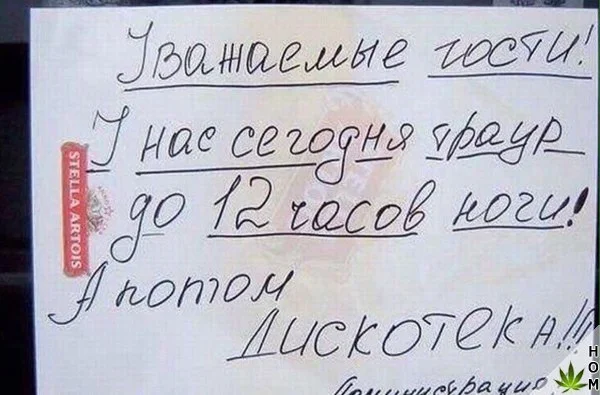 Уважаемые гости!
У нас сегодня траур
до 12 часов ночи!
А потом
Дискотека!!!
Администрация
STELLA ARTOIS
НОМ